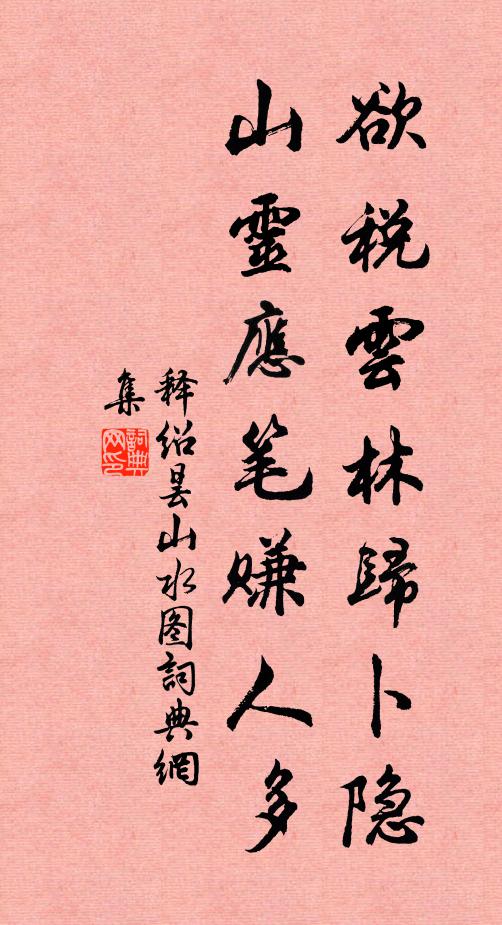 欲税雲林歸卜隐
山靈應笔赚人多
释绍昙山水图詞典網
集
詞典网印